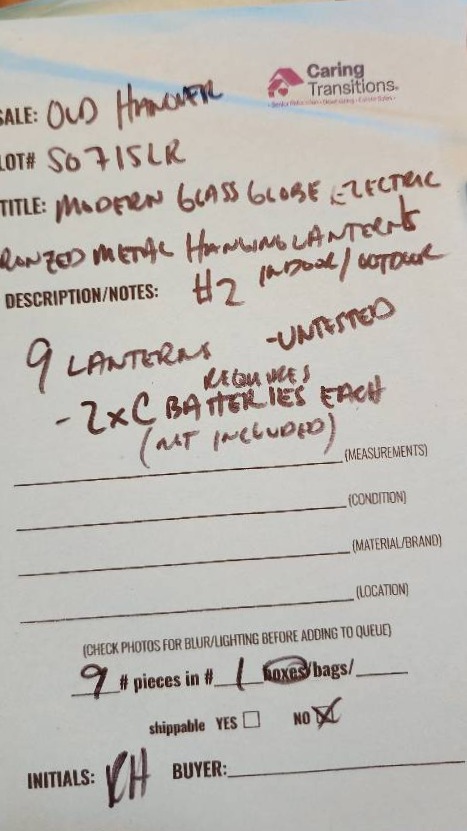 Caring
Transitions®
SALE: OLD HANOVER
LOT# S0715LR
TITLE: MODERN GLASS GLOBE ELECTRIC
RONZED METAL HANGING LANTERNS
INDOOR/OUTDOOR
DESCRIPTION/NOTES: #2
9 LANTERNS -UNTESTED
REQUIRES
- 2xC BATTERIES EACH
(NOT INCLUDED)
(MEASUREMENTS)
(CONDITION)
(MATERIAL/BRAND)
(LOCATION)
(CHECK PHOTOS FOR BLUR/LIGHTING BEFORE ADDING TO QUEUE)
9 # pieces in # 1 boxes/bags/
shippable YES NO X
INITIALS: RH BUYER: